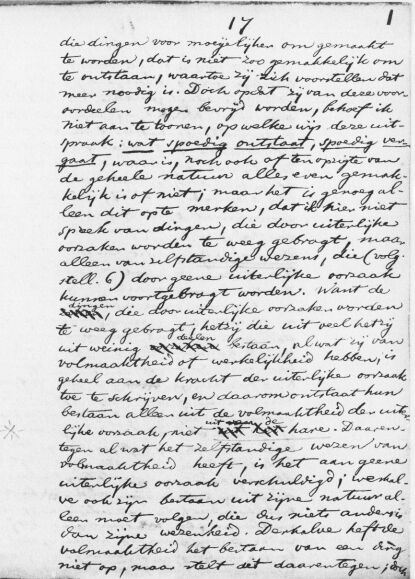 17
1
die dingen voor moeijelijker om gemaakt
te worden, dat is niet zoo gemakkelijk om
te ontstaan, waartoe zij zich voorstellen dat
meer noodig is. Doch opdat zij van deze voor-
oordeelen mogen bevrijd worden, behoef ik
niet aan te toonen, op welke wijs deze uit-
spraak: wat spoedig ontstaat, spoedig ver-
gaat, waar is, noch ook of ten opzigte van
de geheele natuur alles even gemak-
kelijk is of niet; maar het is genoeg al-
leen dit op te merken, dat ik hier niet
spreek van dingen, die door uiterlijke
oorzaken worden te weeg gebragt, maar
alleen van zelfstandige wezens, die (volg.
stell. 6) door geene uiterlijke oorzaak
kunnen voortgebragt worden. Want de
dingen
, die door uiterlijke oorzaken worden
te weeg gebragt, hetzij die uit veel hetzij
uit weinig deelen bestaan, al wat zij van
volmaaktheid of werkelijkheid hebben, is
geheel aan de kracht der uiterlijke oorzaak
toe te schrijven, en daarom ontstaat hun
bestaan alleen uit de volmaaktheid der uiter-
lijke oorzaak, niet uit de hare. Daaren-
tegen al wat het zelfstandige wezen van
volmaaktheid heeft, is het aan geene
uiterlijke oorzaak verschuldigd; weshal-
ve ook zijn bestaan uit zijne natuur al-
leen moet volgen, die dus niets anders is
dan zijne wezenheid. Derhalve heft de
volmaaktheid het bestaan van een ding
niet op, maar stelt dit daarentegen; doch